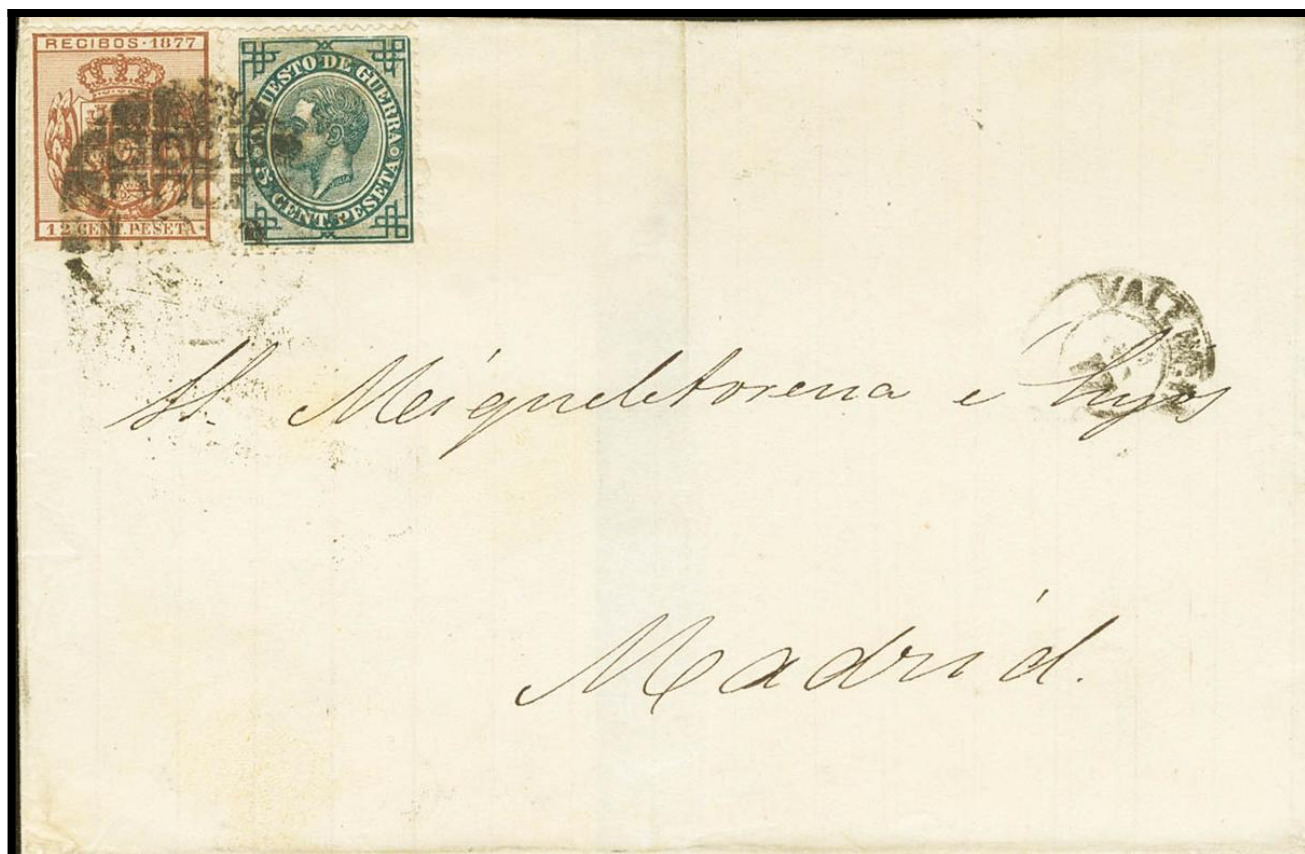 RECIBOS·1877
12 CENT. PESETA.
IMPUESTO DE GUERRA
5 CENT. PESETA
Miqueletorena e hijos
Madrid.